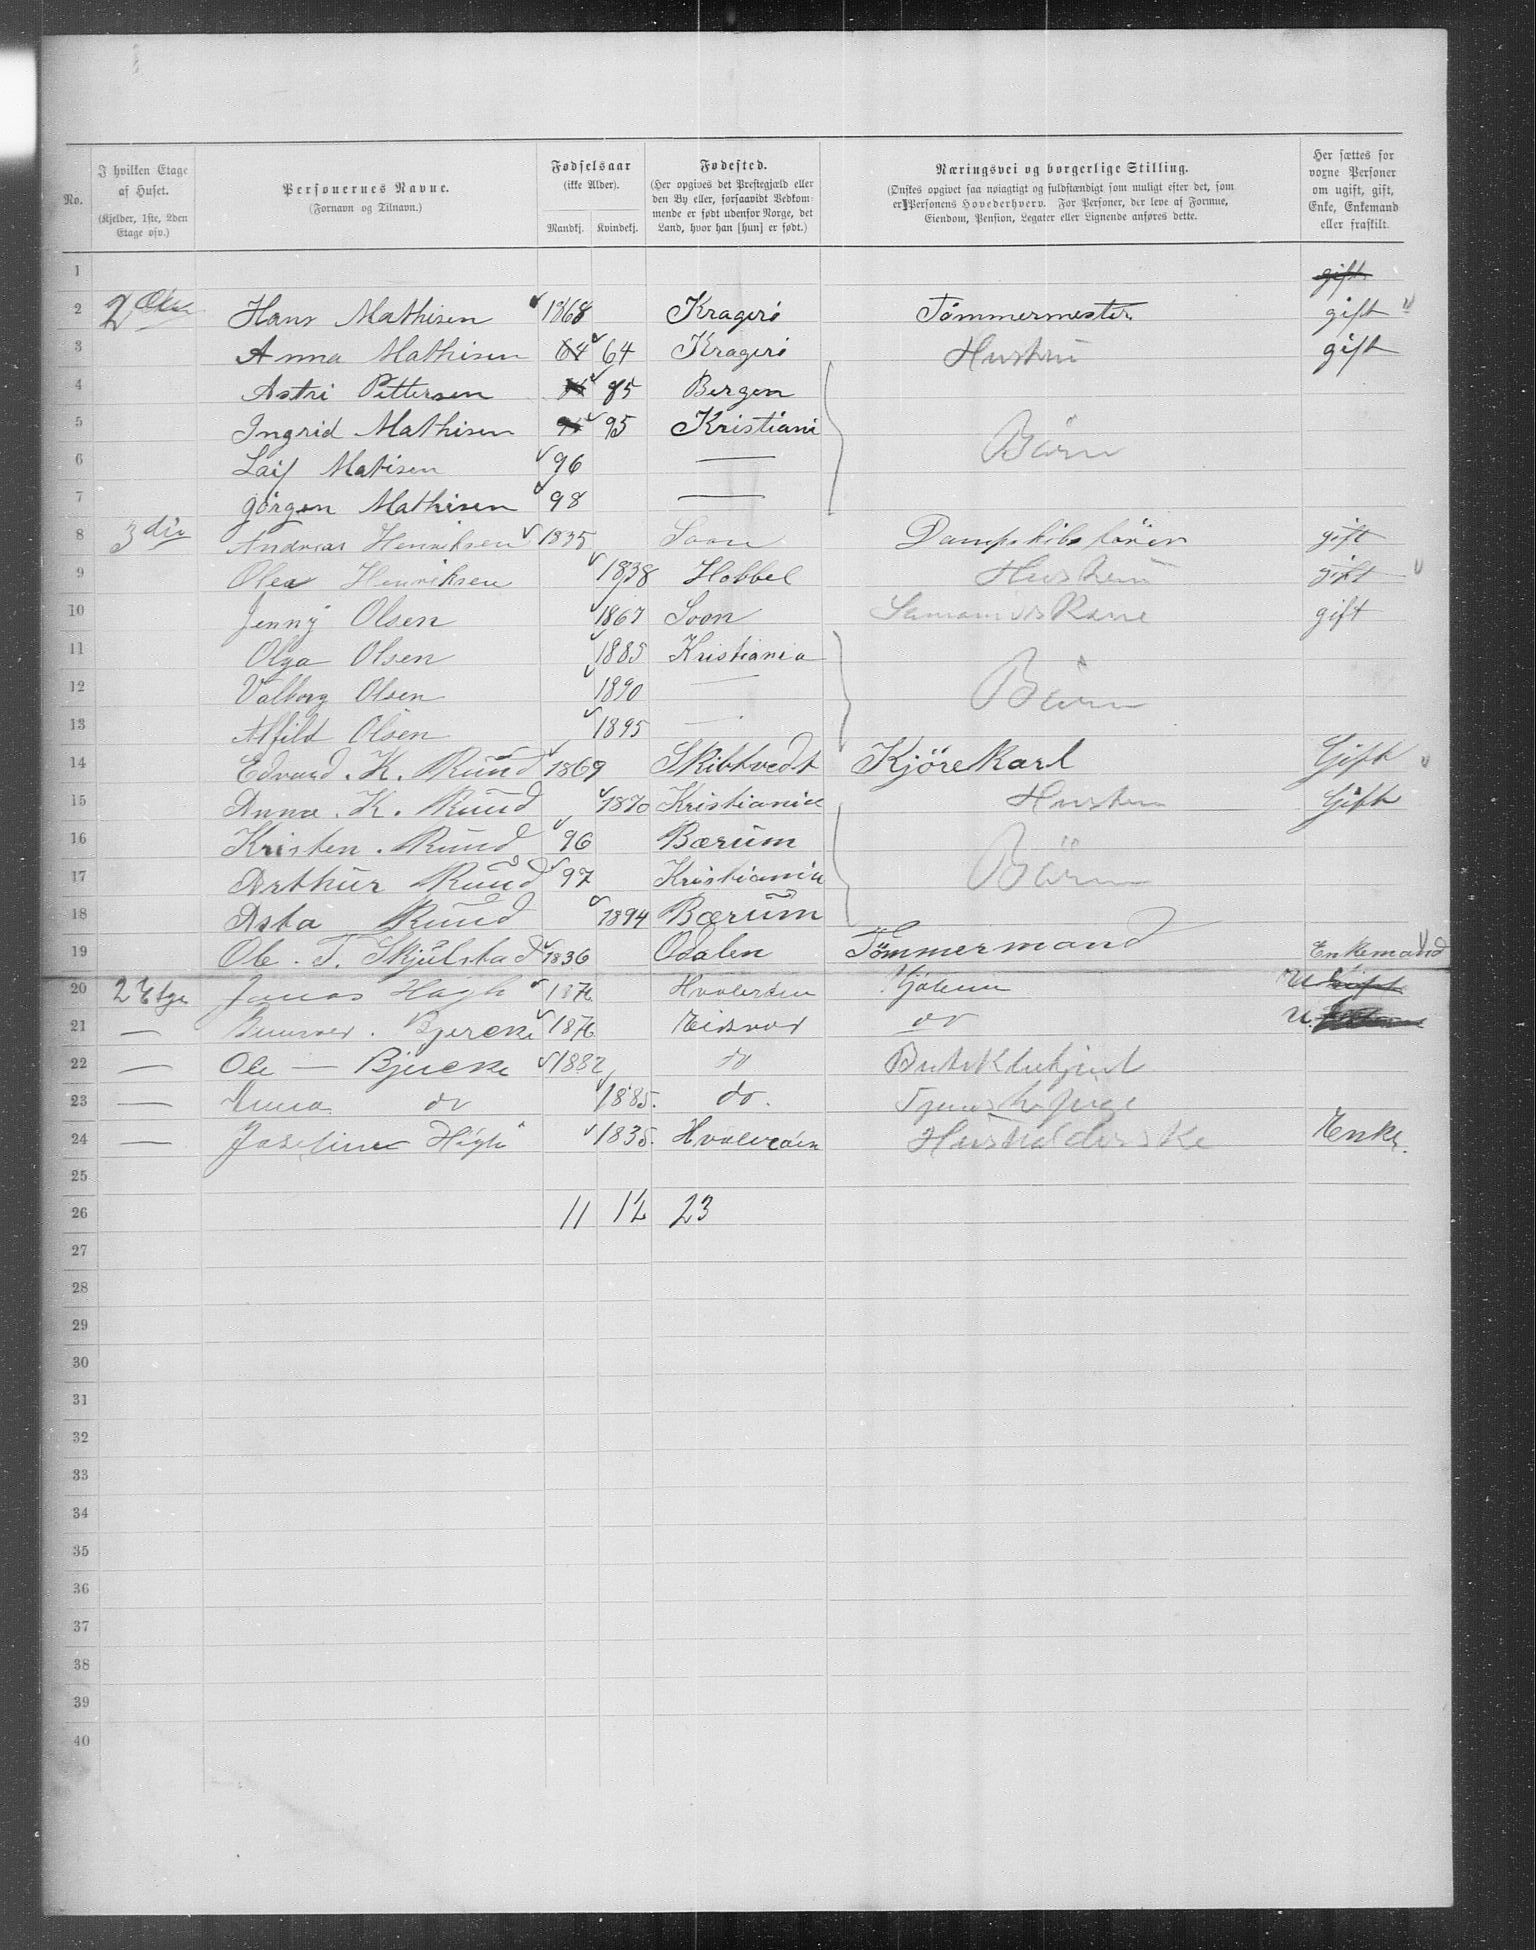 No.
I hvilken Etage af Huset. (Kjelder, 1ste, 2den Etage osv.)
Personernes Navne. (Fornavn og Tilnavn.)
Fødselsaar (ikke Alder). Mandkj. Kvindekj.
Fødested. (Her opgives det Prestegjæld eller den By eller, forsaavidt Vedkommende er født udenfor Norge, det Land, hvor han [hun] er født.)
Næringsvei og borgerlige Stilling. (Ønskes opgivet saa nøiagtigt og fuldstændigt som muligt efter det, som er Personens Hovederhverv. For Personer, der leve af Formue, Eiendom, Pension, Legater eller Lignende anføres dette.
Her sættes for voxne Personer om ugift, gift, Enke, Enkemand eller fraskilt.
1 gift
2 2 Hans Mathisen 1868 Kragerö Tömmermester gift
3 Anna Mathisen 64 64 Kragerö Hustru gift
4 Astri Pettersen 85 Bergen
5 Ingrid Mathisen 95 Kristiani Börn
6 Laif Matisen 96 —
7 Görgen Mathisen 98 —
8 3die Andreas Henriksen 1835 Soon Dampskibsförer gift
9 Olea Henriksen 1838 Hobbel Hustru gift
10 Jenny Olsen 1867 Soon gift
11 Olga Olsen 1885 Kristiania
12 Valborg Olsen 1890 — Börn
13 Alfild Olsen 1895 —
14 Edvard. K. Ruud 1869 Skibtvedt Kjörekarl Gift
15 Anna. K. Ruud 1870 Kristiania Hustru Gift
16 Kristen. Ruud 96 Bærum
17 Arthur Ruud 97 Kristiania Börn
18 Asta Ruud 1894 Bærum
19 Ole. T. Skjulstad 1836 Odalen Tømmermand Enkemand
20 2 Etge Jonas Högh 1876 Hvalerøen U
21 — Bjercke 1876 Eidsvol do U.
22 — Ole — Bjercke 1882 do
23 — Anna do 1885. do.
24 — Josefine Högh 1835. Hvalerøen Husholderske Enke.
25
26 11 12 23
27
28
29
30
31
32
33
34
35
36
37
38
39
40